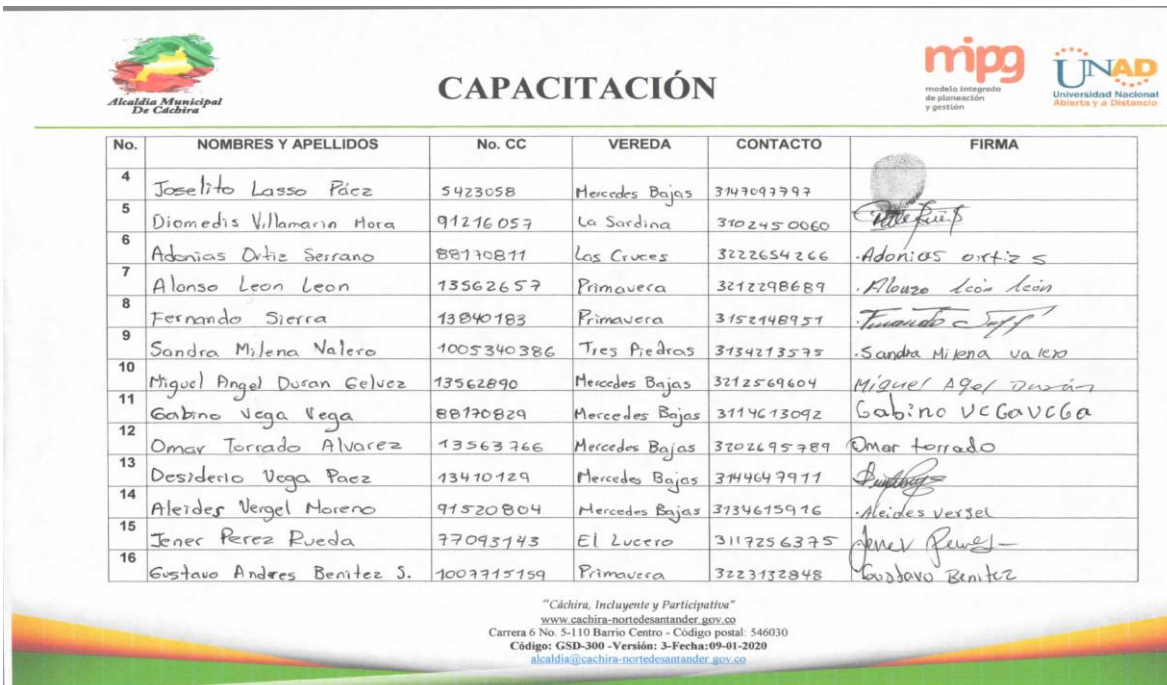 Alcaldia Municipal
De Cáchira
CAPACITACIÓN
mipg
modelo integrado
de planeación
y gestión
UNAD
Universidad Nacional
Abierta y a Distancia
No. NOMBRES Y APELLIDOS No. CC VEREDA CONTACTO FIRMA
4 Joselito Lasso Páez 5423058 Mercedes Bajas 3147097797
5 Diomedis Villamarin Mora 91216057 La Sardina 3102450060
6 Adonias Ortiz Serrano 88170811 Las Cruces 3222654266 Adonias ortiz s
7 Alonso Leon Leon 13562657 Primavera 3212298689 Alonzo león león
8 Fernando Sierra 13840183 Primavera 3152148951 Fernando
9 Sandra Milena Valero 1005340386 Tres Piedras 3134213575 Sandra Milena valero
10 Miguel Angel Duran Gelvez 13562890 Mercedes Bajas 3212569604 Miguel Agel Durán
11 Gabino Vega Vega 88170829 Mercedes Bajas 3114613092 Gabino VEGAVEGA
12 Omar Torrado Alvarez 13563766 Mercedes Bajas 3202695789 Omar torrado
13 Desiderio Vega Paez 13410129 Mercedes Bajas 3144647911
14 Aleides Vergel Moreno 91520804 Mercedes Bajas 3134615916 Aleides vergel
15 Jener Perez Rueda 77093143 El Lucero 3117256375 Jener Perez
16 Gustavo Andres Benitez S. 1007715159 Primavera 3223132848 Gustavo Benitez
"Cáchira, Incluyente y Participativa"
www.cachira-nortedesantander.gov.co
Carrera 6 No. 5-110 Barrio Centro - Código postal: 546030
Código: GSD-300 -Versión: 3-Fecha:09-01-2020
alcaldia@cachira-nortedesantander.gov.co